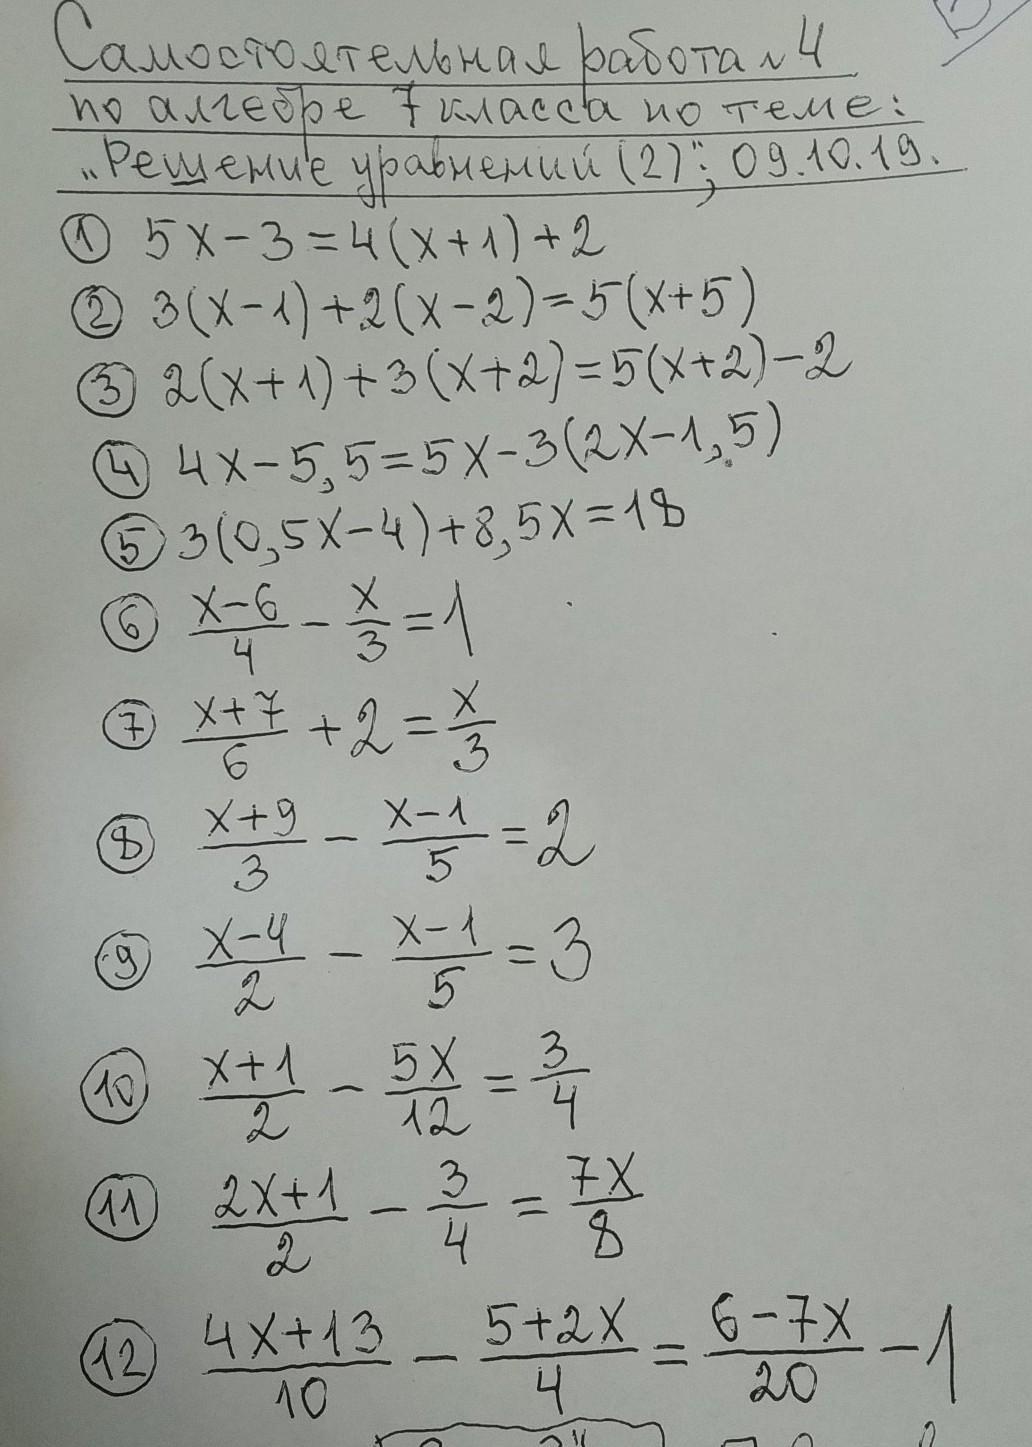 Самостоятельная работа N 4
по алгебре 7 класса по теме:
„Решение уравнений (2)“; 09.10.19.
① 5x-3=4(x+1)+2
② 3(x-1)+2(x-2)=5(x+5)
③ 2(x+1)+3(x+2)=5(x+2)-2
④ 4x-5,5=5x-3(2x-1,5)
⑤ 3(0,5x-4)+8,5x=18
⑥ (x-6)/4 - x/3 = 1
⑦ (x+7)/6 + 2 = x/3
⑧ (x+9)/3 - (x-1)/5 = 2
⑨ (x-4)/2 - (x-1)/5 = 3
⑩ (x+1)/2 - 5x/12 = 3/4
⑪ (2x+1)/2 - 3/4 = 7x/8
⑫ (4x+13)/10 - (5+2x)/4 = (6-7x)/20 - 1